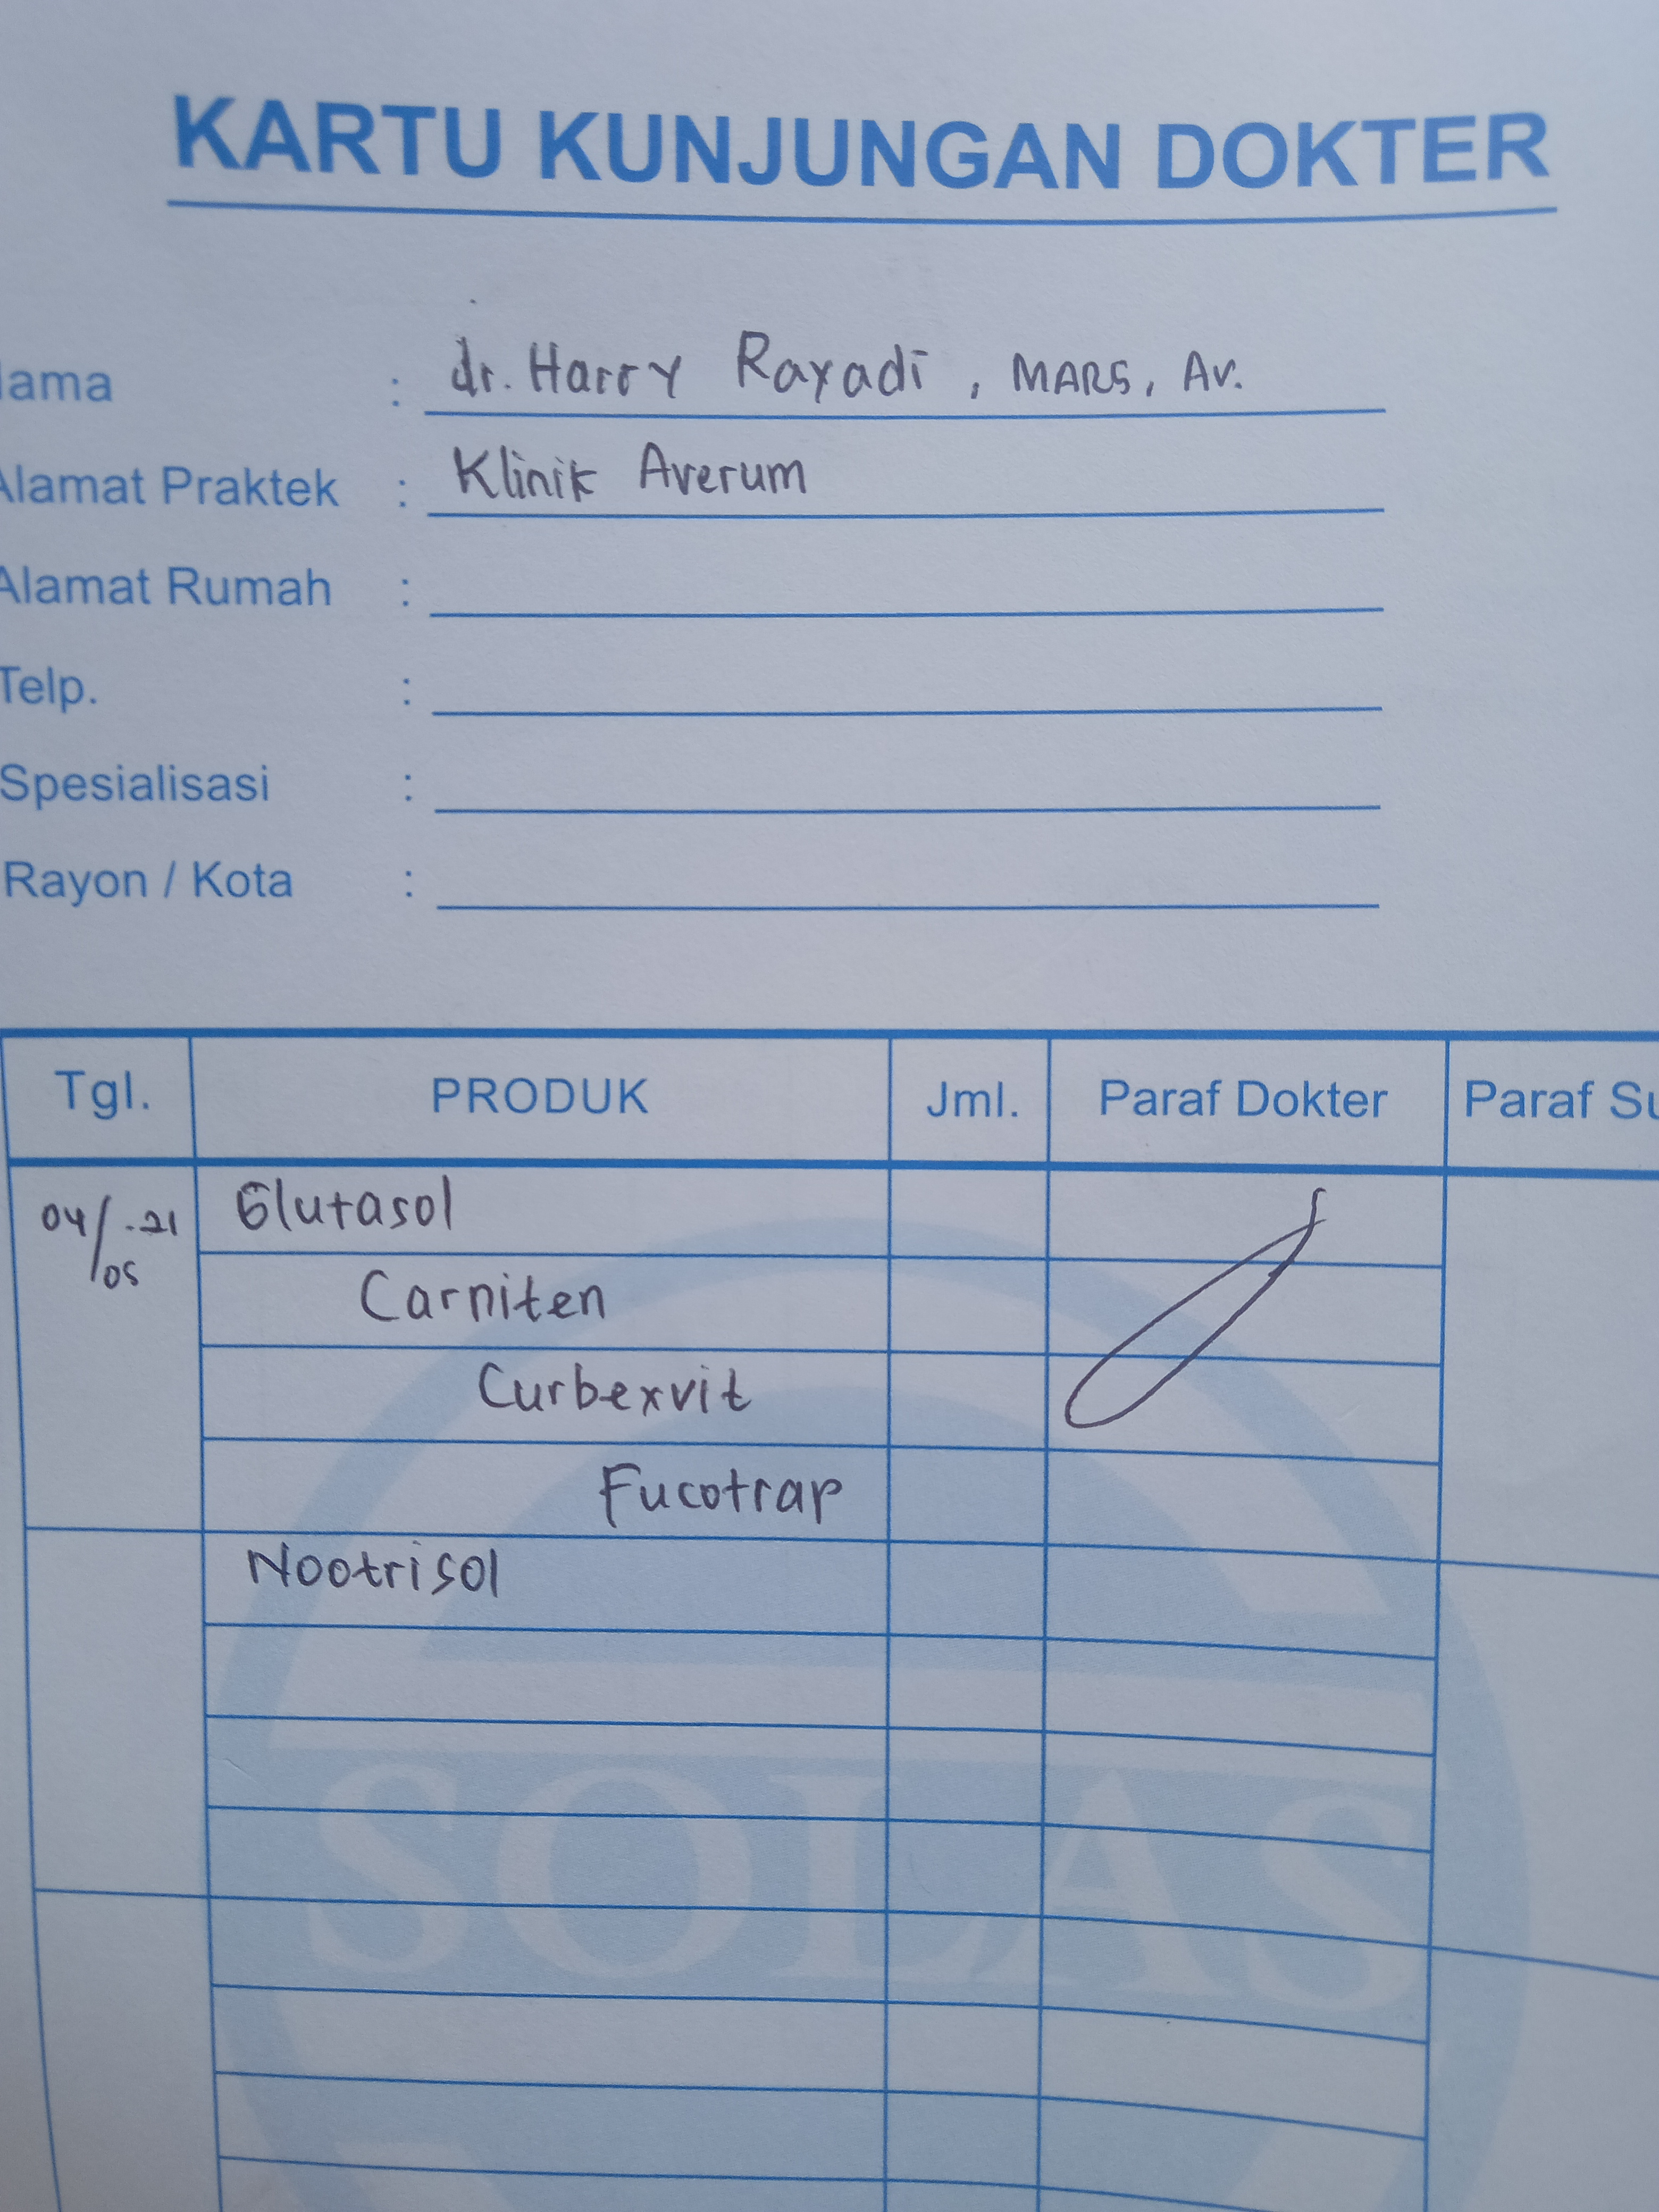 KARTU KUNJUNGAN DOKTER
Nama : dr. Harry Rayadi, MARS, Av.
Alamat Praktek : Klinik Averum
Alamat Rumah :
Telp. :
Spesialisasi :
Rayon / Kota :
Tgl. PRODUK Jml. Paraf Dokter Paraf Su
04/05-21 Glutasol
Carniten
Curbexvit
Fucotrap
Nootrisol
SOLAS